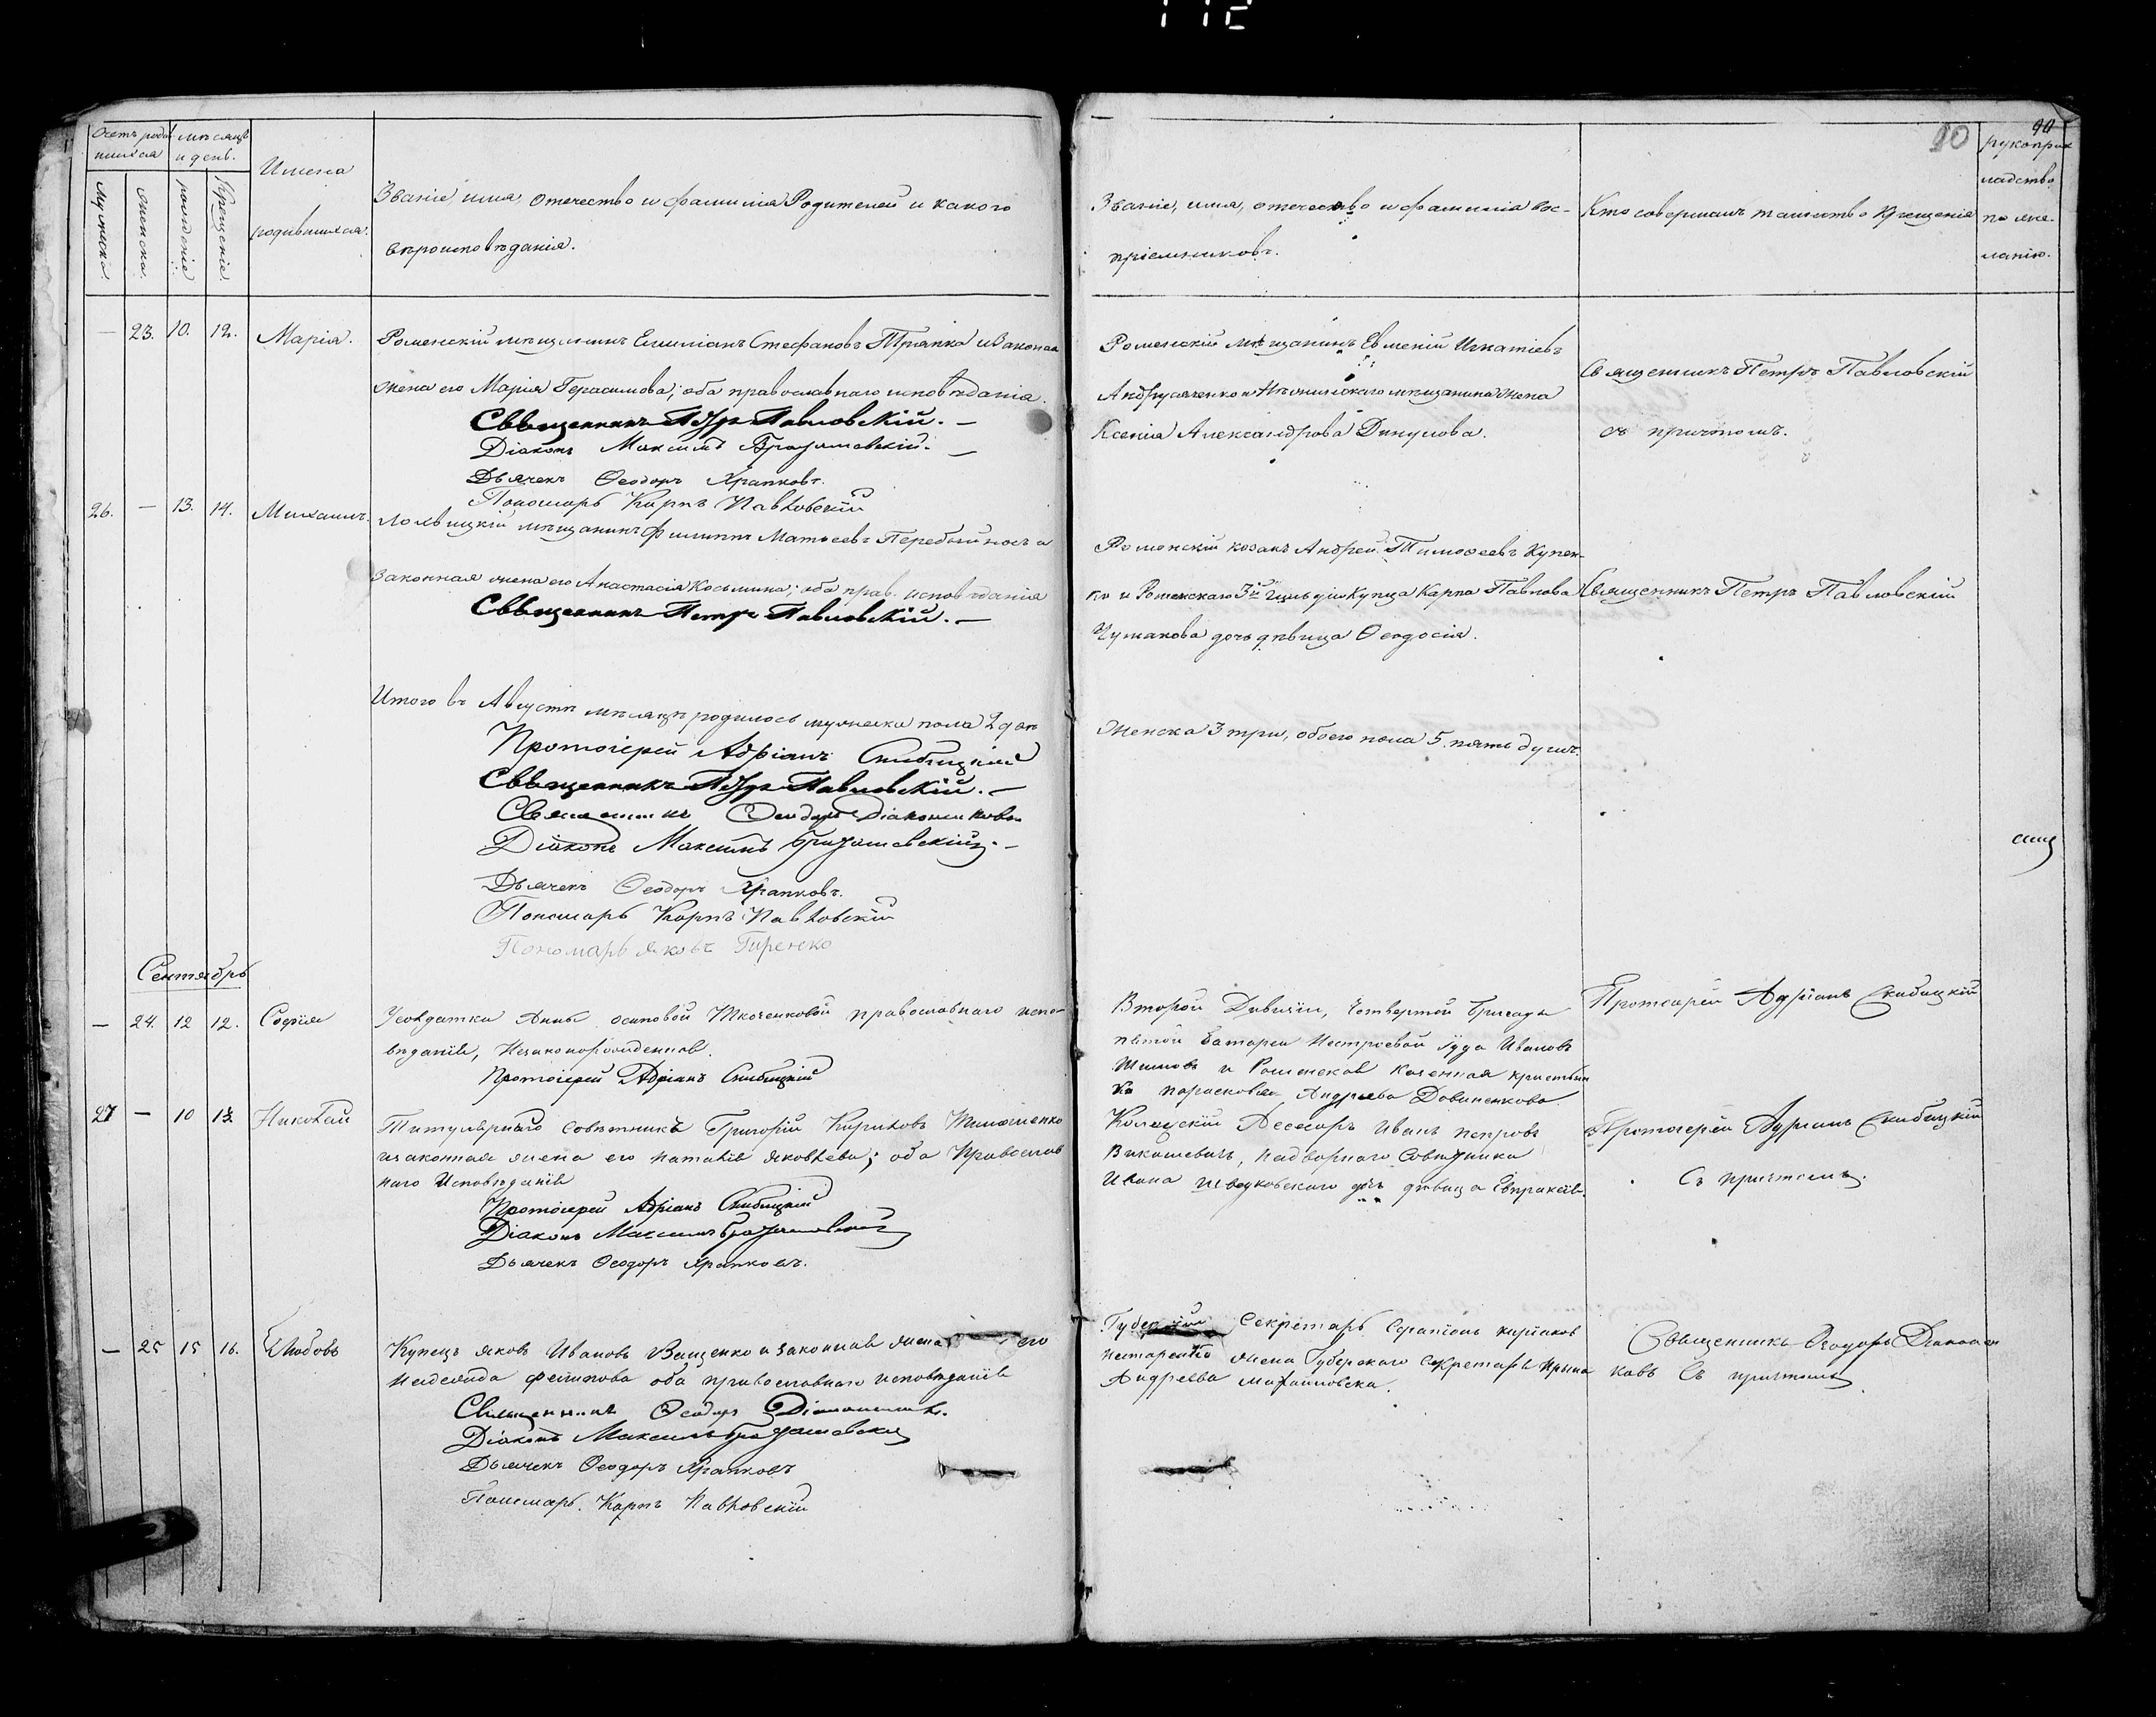 90
90
Счетъ роди
вшихся
мѣсяцъ
и день.
Мужеска.
женска.
рожденіе
Крещеніе.
Имена
родившихся.
Званіе имя отечество и фамилія Родителей и какого
вѣроисповѣданія.
Званіе, имя, отечество и фамилія вос-
пріемниковъ.
Кто совершалъ таинство крещенія
рукоприк
ладство
по же-
ланію.
— 23. 10. 12. Марія.
Роменскій мѣщанинъ Емиліанъ Стефановъ Тряпка и законая
жена его Марія Герасимова; оба православнаго исповѣданія.
Священникъ Петръ Павловскій. —
Діаконъ Максимъ —
Дьячекъ Ѳеодоръ Храпковъ.
Пономарь Карпъ Павловскій
Роменскій мѣщанинъ Евменій Игнатіевъ
мѣщанина жена
Ксенія Александрова
Священникъ Петръ Павловскій
съ причтомъ.
26. — 13. 14. Михаилъ.
Лохвицкій мѣщанинъ Филиппъ Матѳеевъ Перебойносъ и
Законная жена его Анастасія Косьмина; оба прав. исповѣданія
Священникъ Петръ Павловскій. —
Роменскій козакъ Андрей Тимоѳеевъ Купен-
ко и Роменскаго 3й гильдіи Купца Карпа Павлова
Чумакова дочь дѣвица Ѳеодосія.
Священникъ Петръ Павловскій
Итого въ Августѣ мѣсяцѣ родилось мужеска пола 2 два
Женска 3 три, обоего пола 5. пять душъ.
Протоіерей Адріанъ Скибицкій
Священникъ Петръ Павловскій. —
Священникъ Ѳеодоръ Діаконенковъ
Діаконъ Максимъ —
Дьячекъ Ѳеодоръ Храпковъ.
Пономарь Карпъ Павловскій
Пономарь Яковъ Гиренко
Сентябрь
— 24. 12 12. Софія
Анны Осиповой Ткаченковой православнаго испо-
вѣданія, Незаконорожденная.
Протоіерей Адріанъ Скибицкій
Второй Дивизіи, Четвертой Бригады
пѣтой Батареи Нестроевой Іуда Ивановъ
и Роменская Казенная крестьян
ка Парасковія Андреева Довиненкова
Протоіерей Адріанъ Скибицкій
27 — 10 13. Николай
Титулярнаго Совѣтникъ Григорій Кириловъ Тимошенко
и законная жена его Наталія Яковлева; оба Православ
наго Исповѣданія
Протоіерей Адріанъ Скибицкій
Діаконъ Максимъ
Дьячекъ Ѳеодоръ Храпковъ.
Колежскій Асесоръ Иванъ Петровъ
Викашевичъ, Надворнаго Совѣтника
Ивана дочь дѣвица Евпраксія.
Протоіерей Адріанъ Скибицкій
Съ причтомъ.
— 25 15 16. Любовь
Купецъ Яковъ Ивановъ Ващенко и законная жена его
Филипова оба православнаго исповѣданія
Священникъ Ѳеодоръ Діаконенковъ.
Діаконъ Максимъ
Дьячекъ Ѳеодоръ Храпковъ
Пономарь Карпъ Павловскій
Губернскій Секретарь Серапіонъ Киріаковъ
Нестаренко жена Губерскаго Секретаря Ирина
Андреева
Священникъ Ѳеодоръ Діаконен
ковъ Съ причтомъ